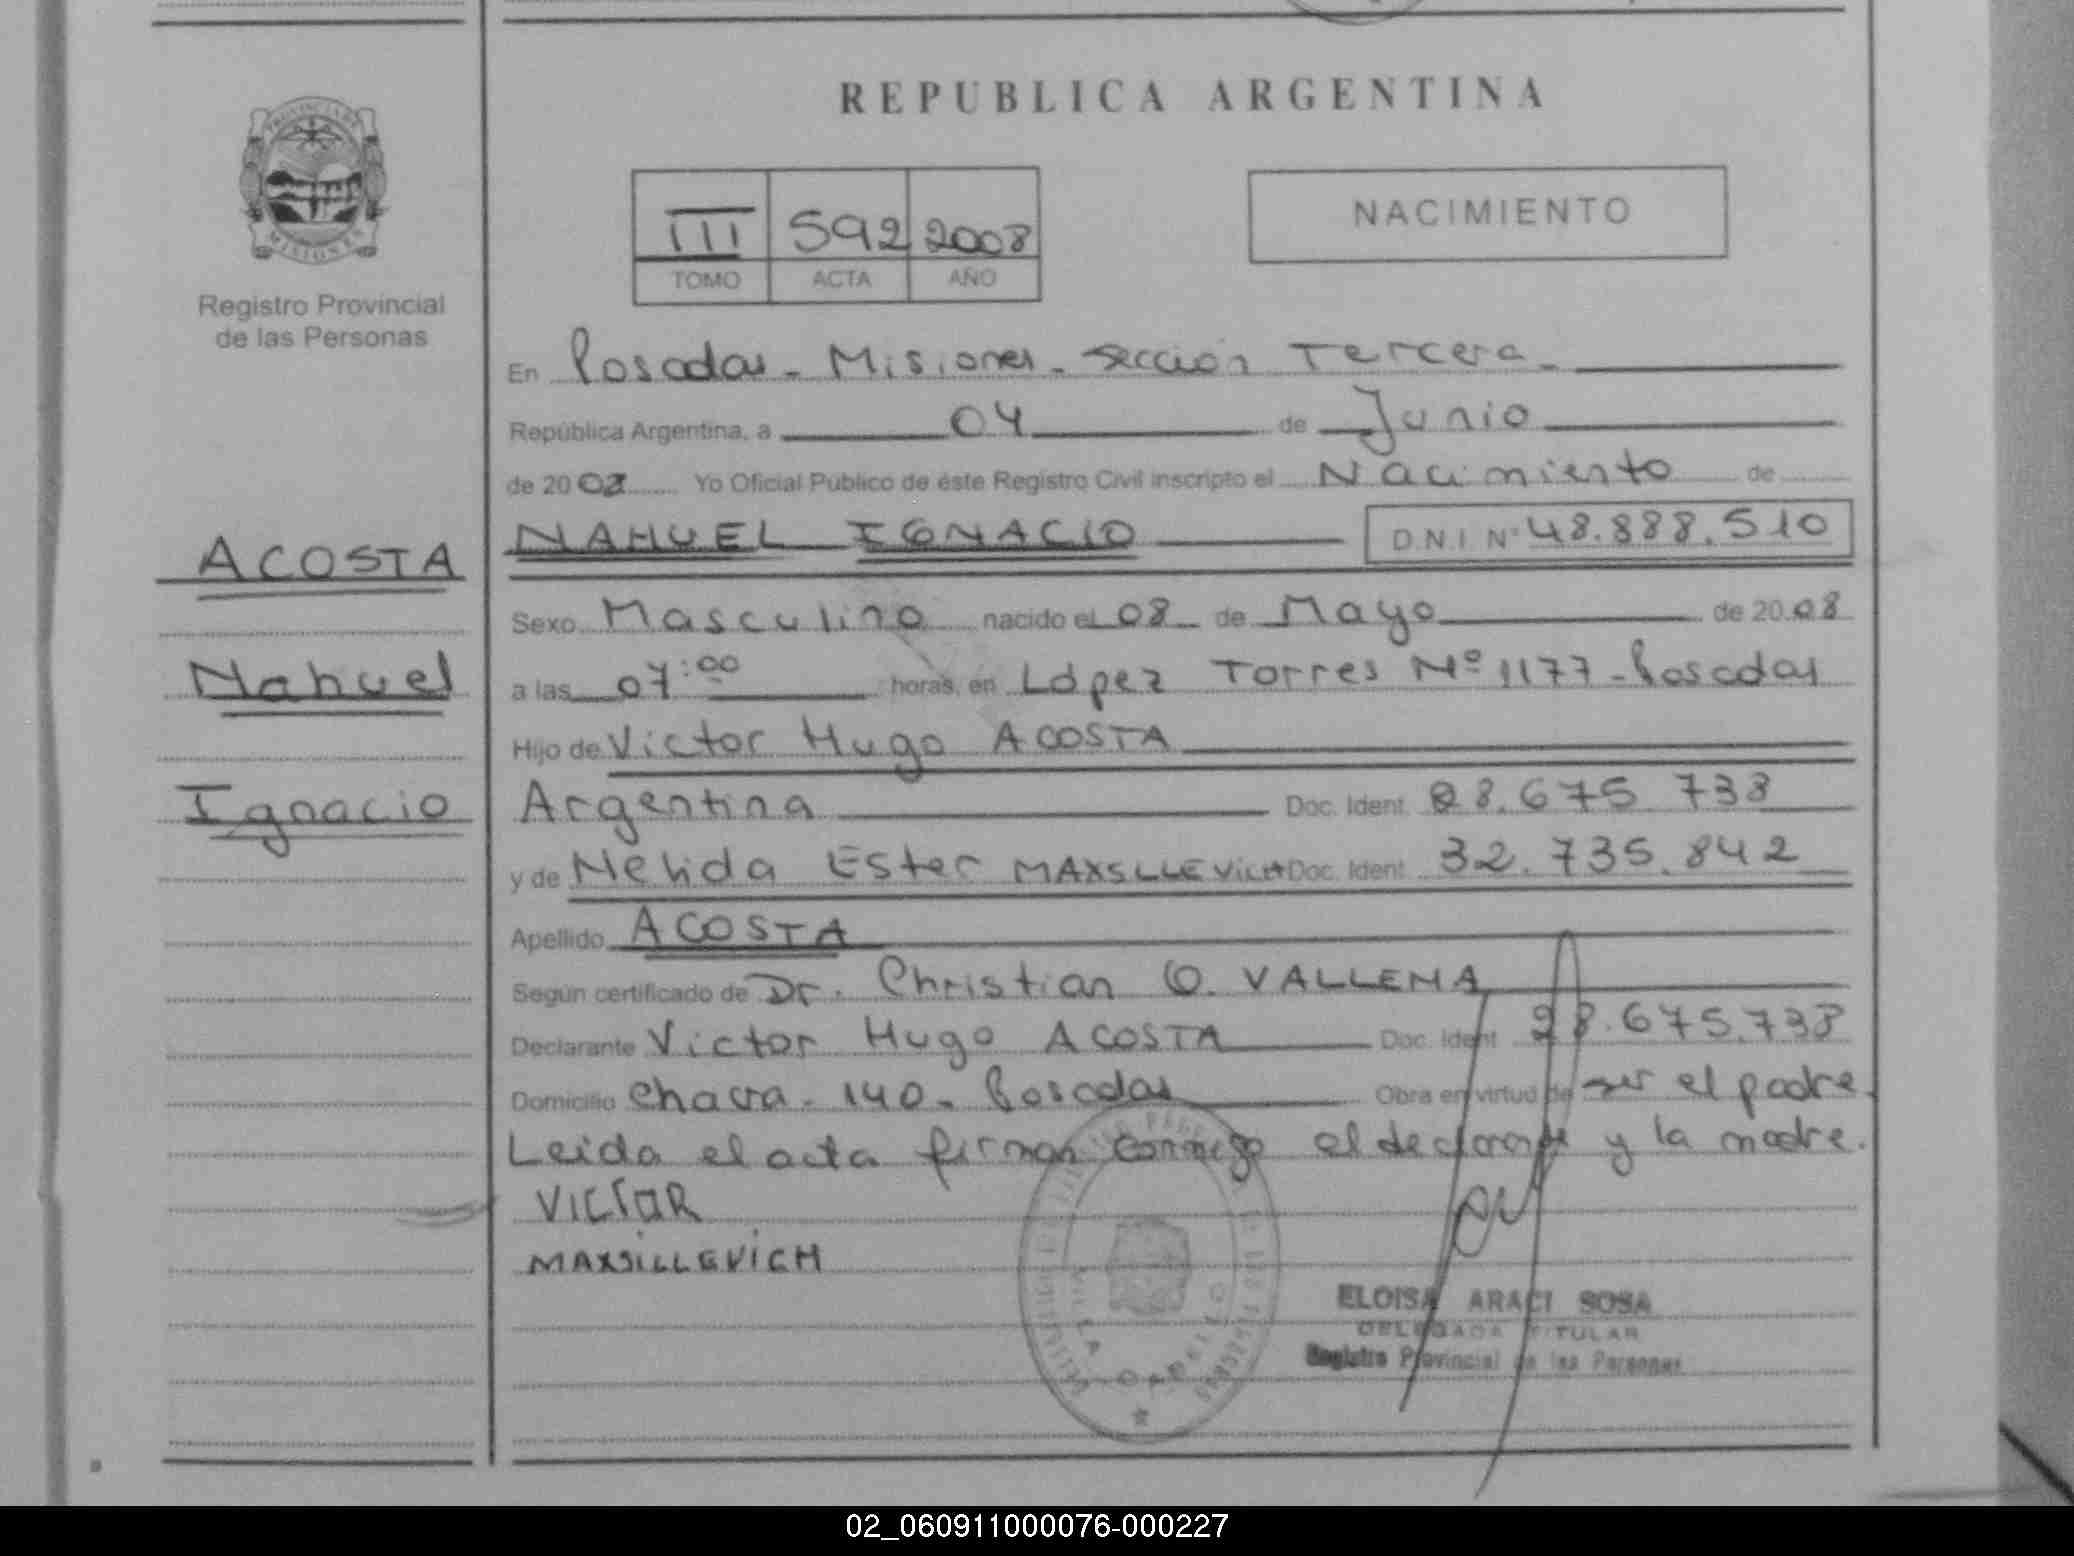 REPUBLICA ARGENTINA
PROVINCIA DE
MISIONES
Registro Provincial
de las Personas
III 592 2008
TOMO ACTA AÑO
NACIMIENTO
En Posadas - Misiones - sección Tercera -
República Argentina, a 04 de Junio
de 2008 Yo Oficial Público de éste Registro Civil inscripto el Nacimiento de
ACOSTA
Nahuel
Ignacio
NAHUEL IGNACIO D.N.I. Nº 48.888.510
Sexo Masculino nacido el 08 de Mayo de 2008
a las 07:00 horas, en López Torres Nº 1177 - Posadas
Hijo de Victor Hugo ACOSTA
Argentina Doc. Ident. 28.675 738
y de Nelida Ester MAXSLLEVICH Doc. Ident. 32.735.842
Apellido ACOSTA
Según certificado de Dr. Christian O. VALLEMA
Declarante Victor Hugo ACOSTA Doc. Ident 28.675.738
Domicilio Chacra - 140 - Posadas Obra en virtud de ser el padre.
Leida el acta firman conmigo el declarante y la madre.
VICTOR
MAXSILLEVICH
VILLA CABELLO
ELOISA ARACI SOSA
DELEGADA TITULAR
Registro Provincial de las Personas
02_060911000076-000227